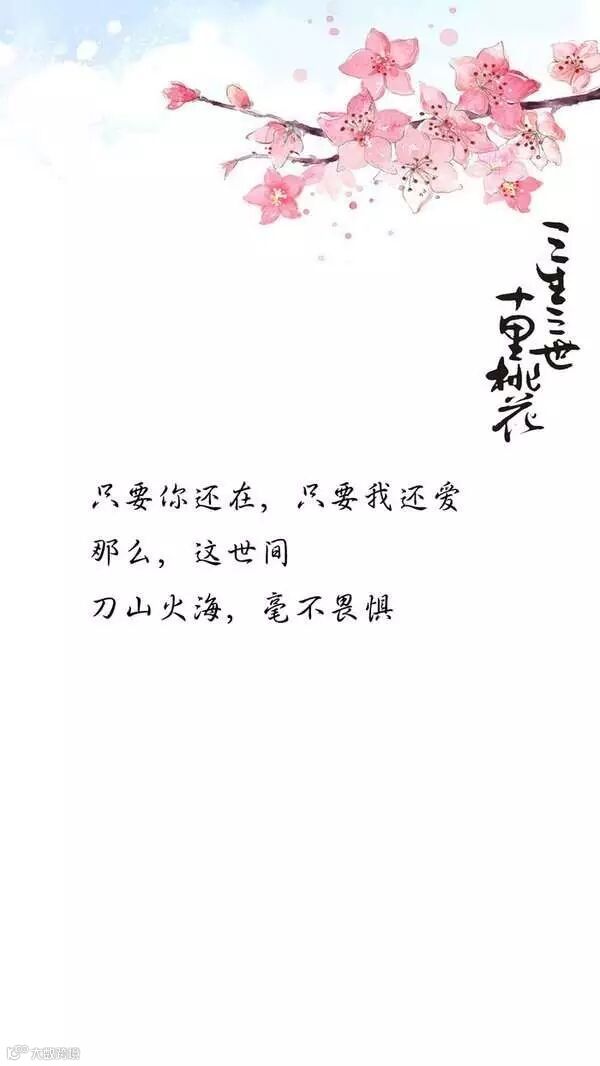 三生三世
十里桃花
只要你还在，只要我还爱
那么，这世间
刀山火海，毫不畏惧
大数跨境